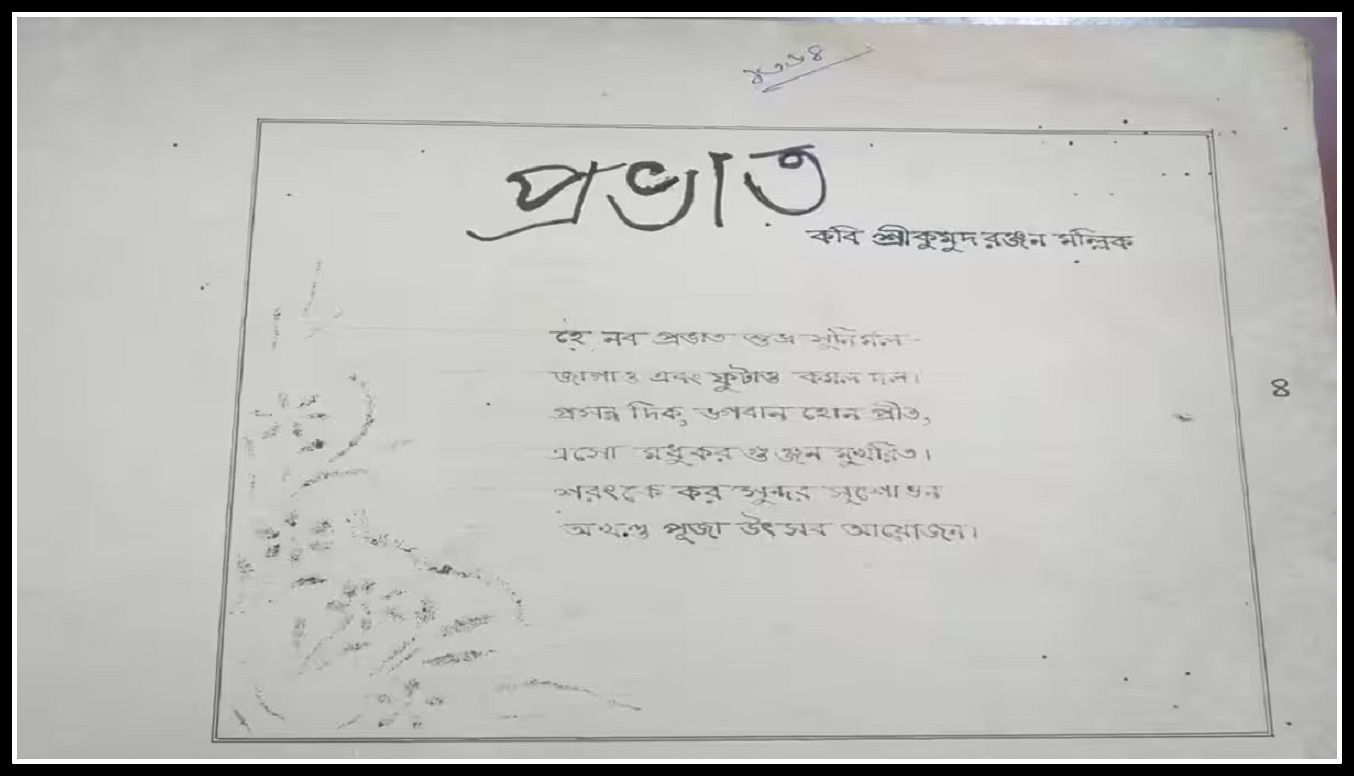 ১৩৬৪
প্রভাত
কবি শ্রীকুমুদ রঞ্জন মল্লিক
হে নব প্রভাত শুভ্র সুনির্মল -
জাগাও এবং ফুটাও কমল দল।
প্রসন্ন দিক, ভগবান হোন প্রীত,
এসো মধুকর গুঞ্জন মুখরিত।
শরৎকে কর সুন্দর সুশোভন
অখণ্ড পূজা উৎসব আয়োজন।
৪